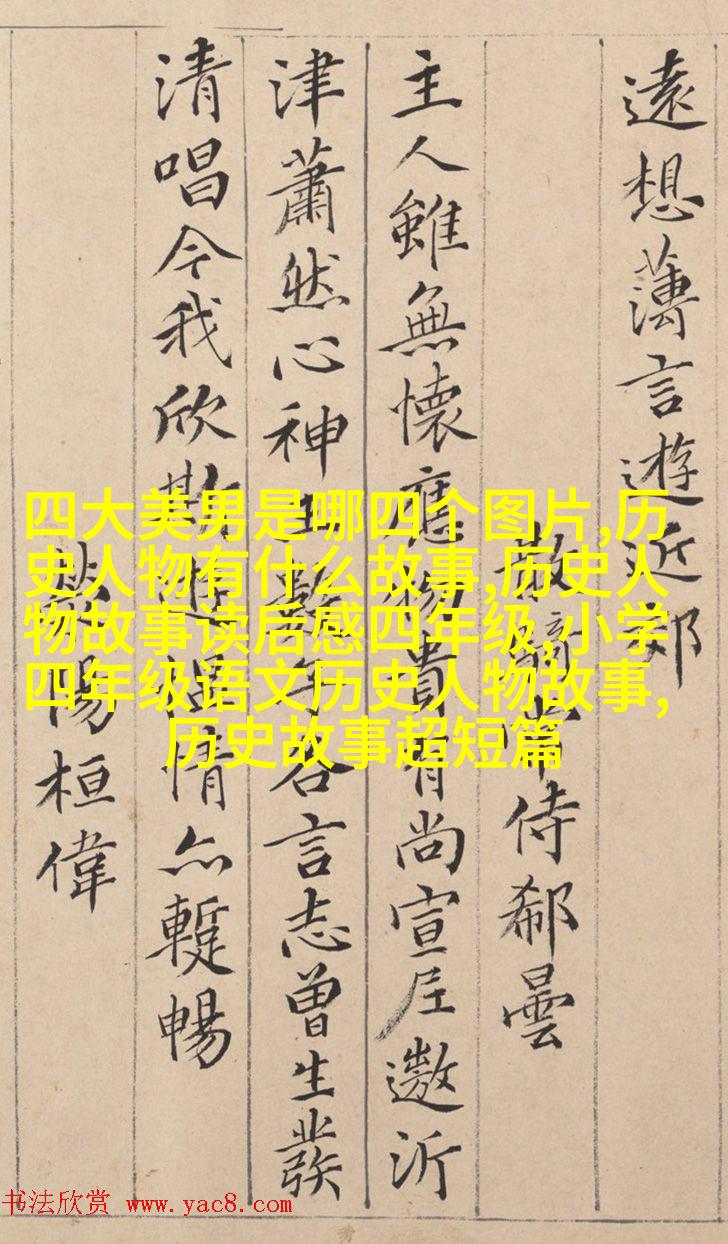 遠想薄言遊近郊
散騎常侍郗曇
主人雖無懷應物貴有尚宣尼遨沂
津蕭然心神王數子各言志曾生發
清唱今我欣斯遊慍情亦暫暢
滎陽桓偉
四大美男是哪四个图片,历
史人物有什么故事,历史人
物故事读后感四年级,小学
四年级语文历史人物故事,
历史故事超短篇
书法欣赏 www.yac8.com